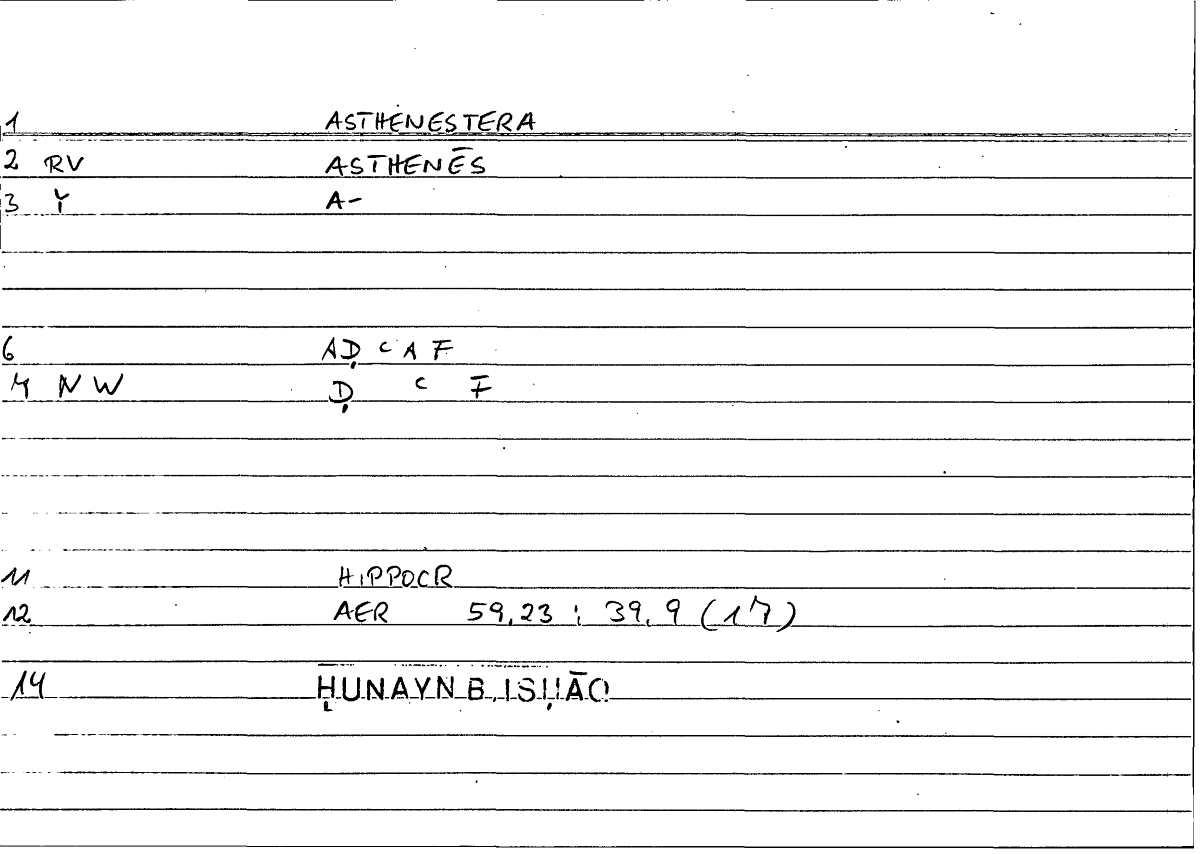 1 ASTHENESTERA
2 RV ASTHENĒS
3 Y A-
6 AḌ ʿ A F
7 N W Ḍ ʿ F
11 HIPPOCR
12 AER 59,23 ; 39,9 (17)
14 ḤUNAYN B. ISḤĀQ